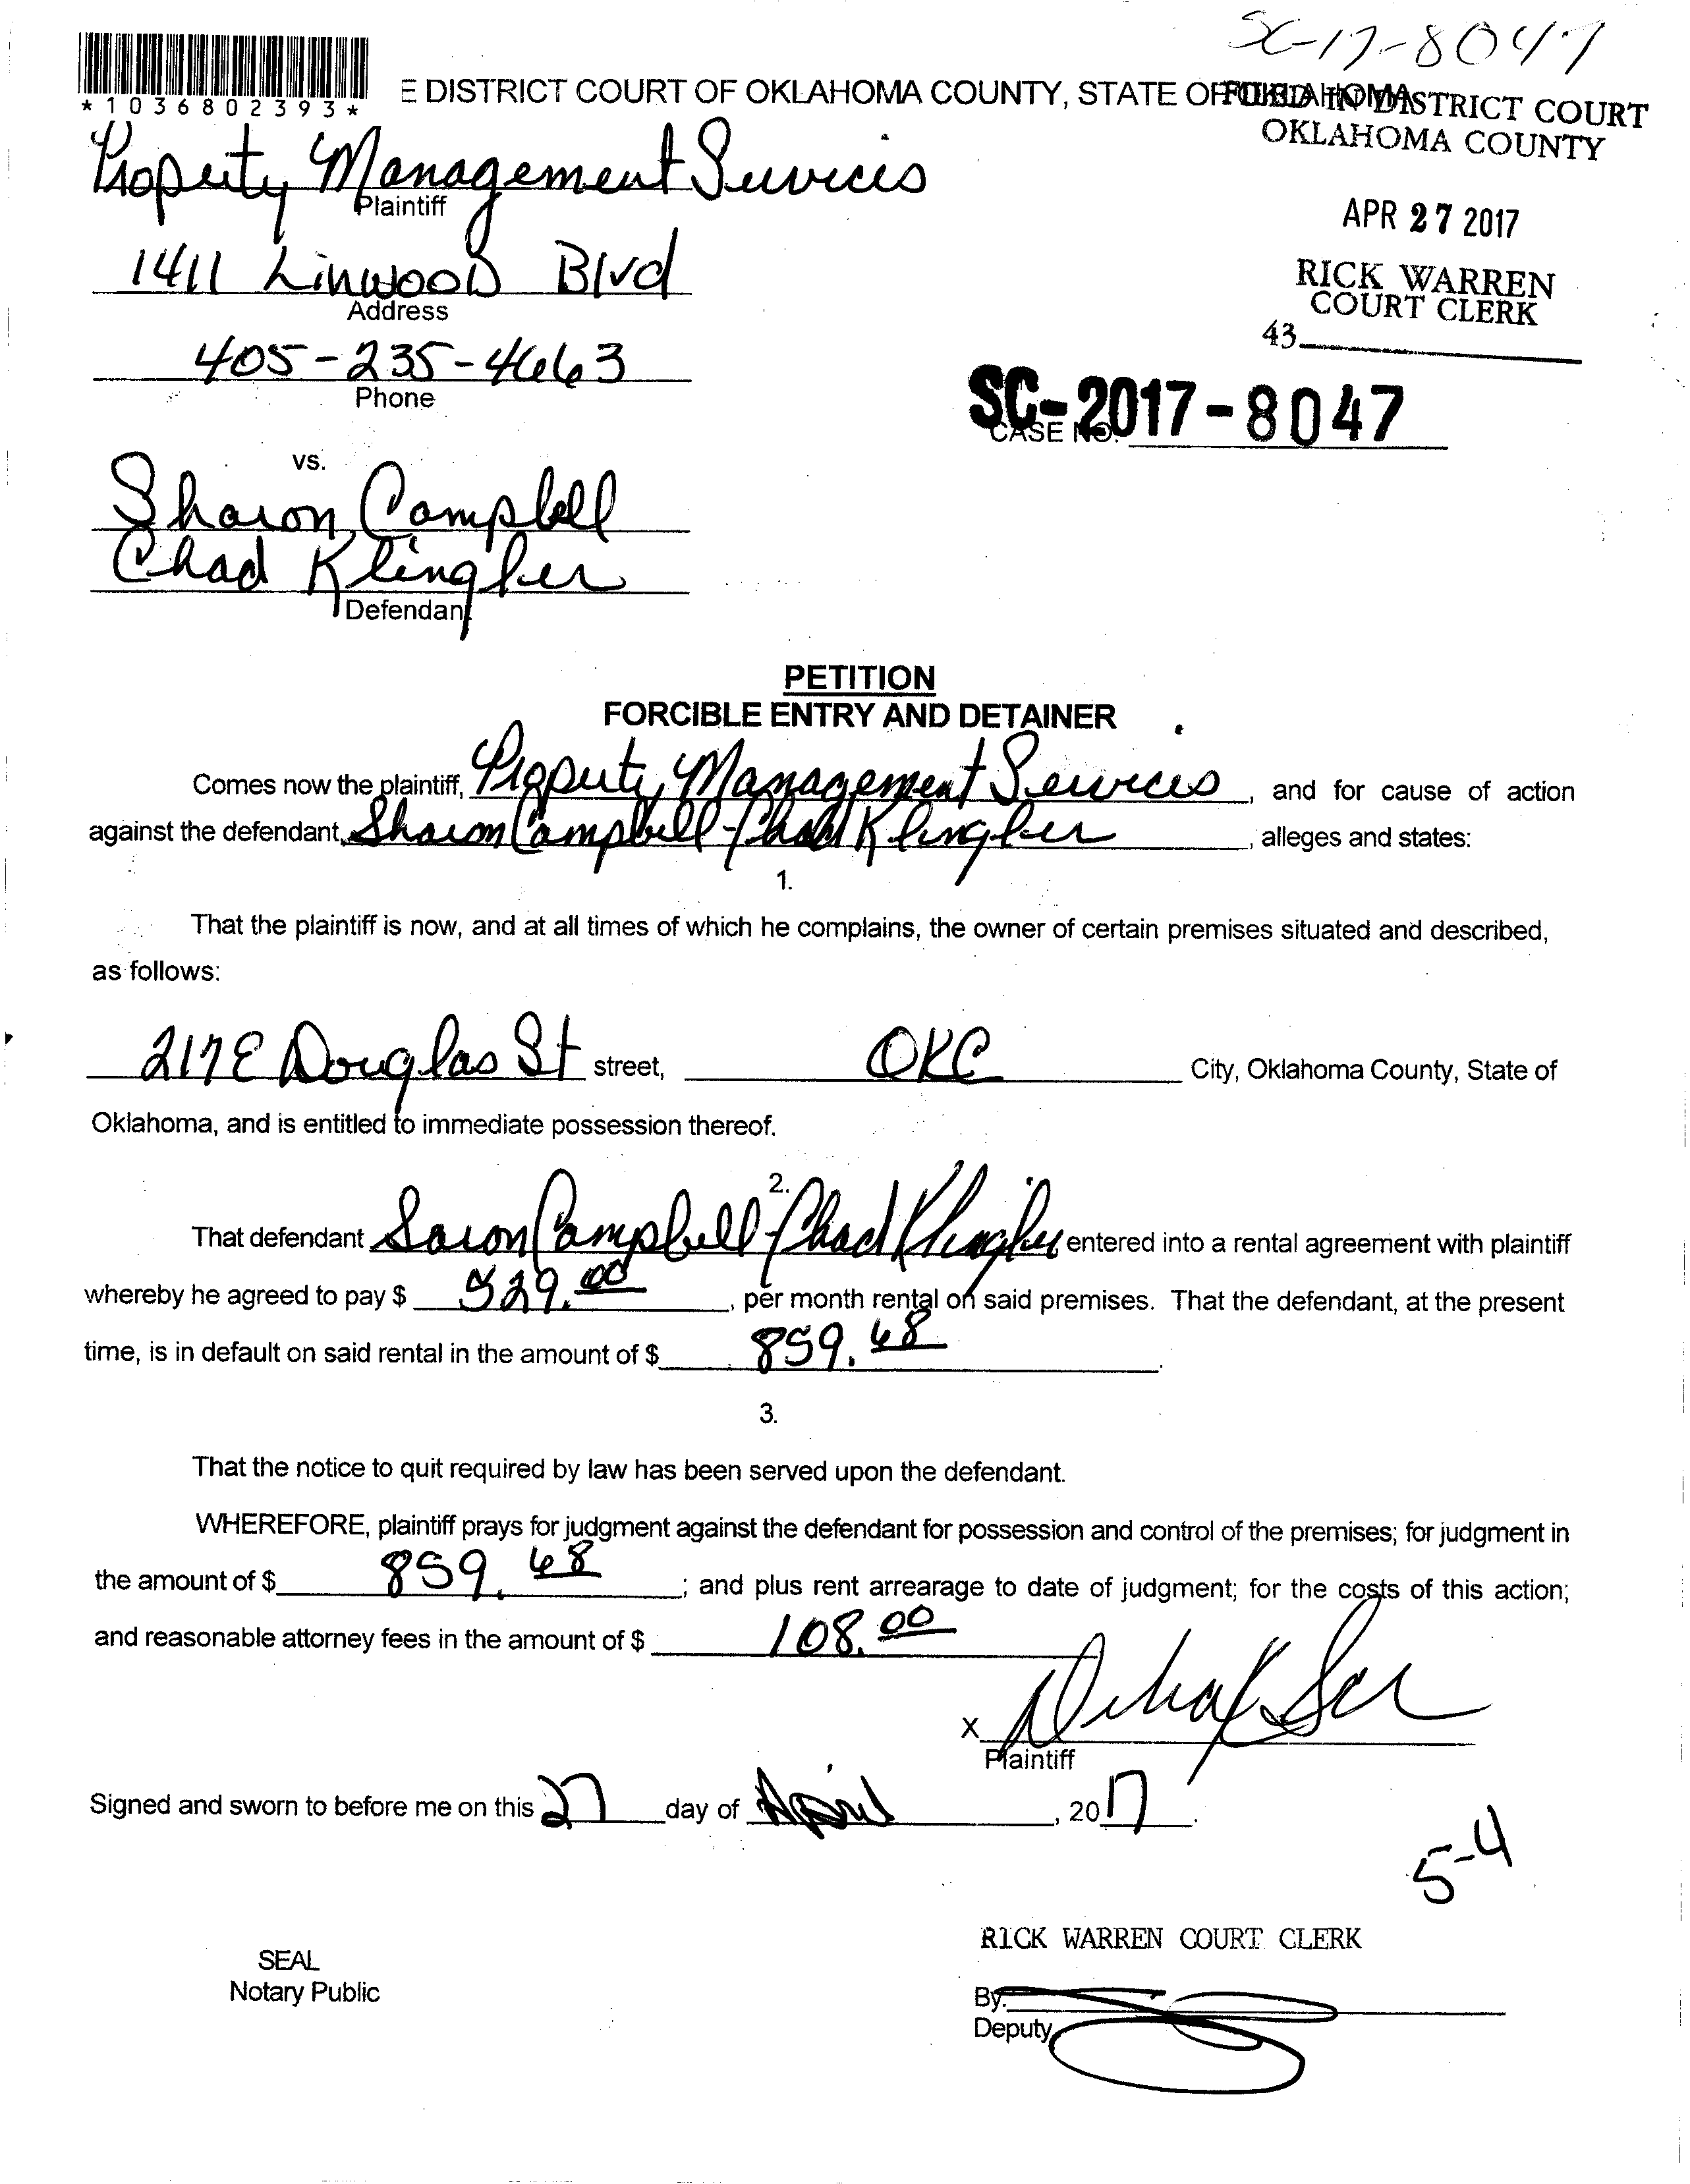 SC-17-8047
*1036802393*
E DISTRICT COURT OF OKLAHOMA COUNTY, STATE OF OKLAHOMA
FILED IN DISTRICT COURT
OKLAHOMA COUNTY
Property Management Services
Plaintiff
APR 27 2017
1411 Linwood Blvd
Address
RICK WARREN
COURT CLERK
43
405-235-4663
Phone
SC-2017-8047
CASE NO.
vs.
Sharon Campbell
Chad Klingler
Defendant
PETITION
FORCIBLE ENTRY AND DETAINER
Comes now the plaintiff, Property Management Services, and for cause of action
against the defendant, Sharon Campbell-Chad Klingler, alleges and states:
1.
That the plaintiff is now, and at all times of which he complains, the owner of certain premises situated and described,
as follows:
217 E Douglas St street, OKC City, Oklahoma County, State of
Oklahoma, and is entitled to immediate possession thereof.
2.
That defendant Saron Campbell-Chad Klingler entered into a rental agreement with plaintiff
whereby he agreed to pay $ 529.00, per month rental on said premises. That the defendant, at the present
time, is in default on said rental in the amount of $ 859.68.
3.
That the notice to quit required by law has been served upon the defendant.
WHEREFORE, plaintiff prays for judgment against the defendant for possession and control of the premises; for judgment in
the amount of $ 859.68; and plus rent arrearage to date of judgment; for the costs of this action;
and reasonable attorney fees in the amount of $ 108.00
X
Plaintiff
Signed and sworn to before me on this 27 day of April, 2017.
5-4
RICK WARREN COURT CLERK
SEAL
Notary Public
By:
Deputy